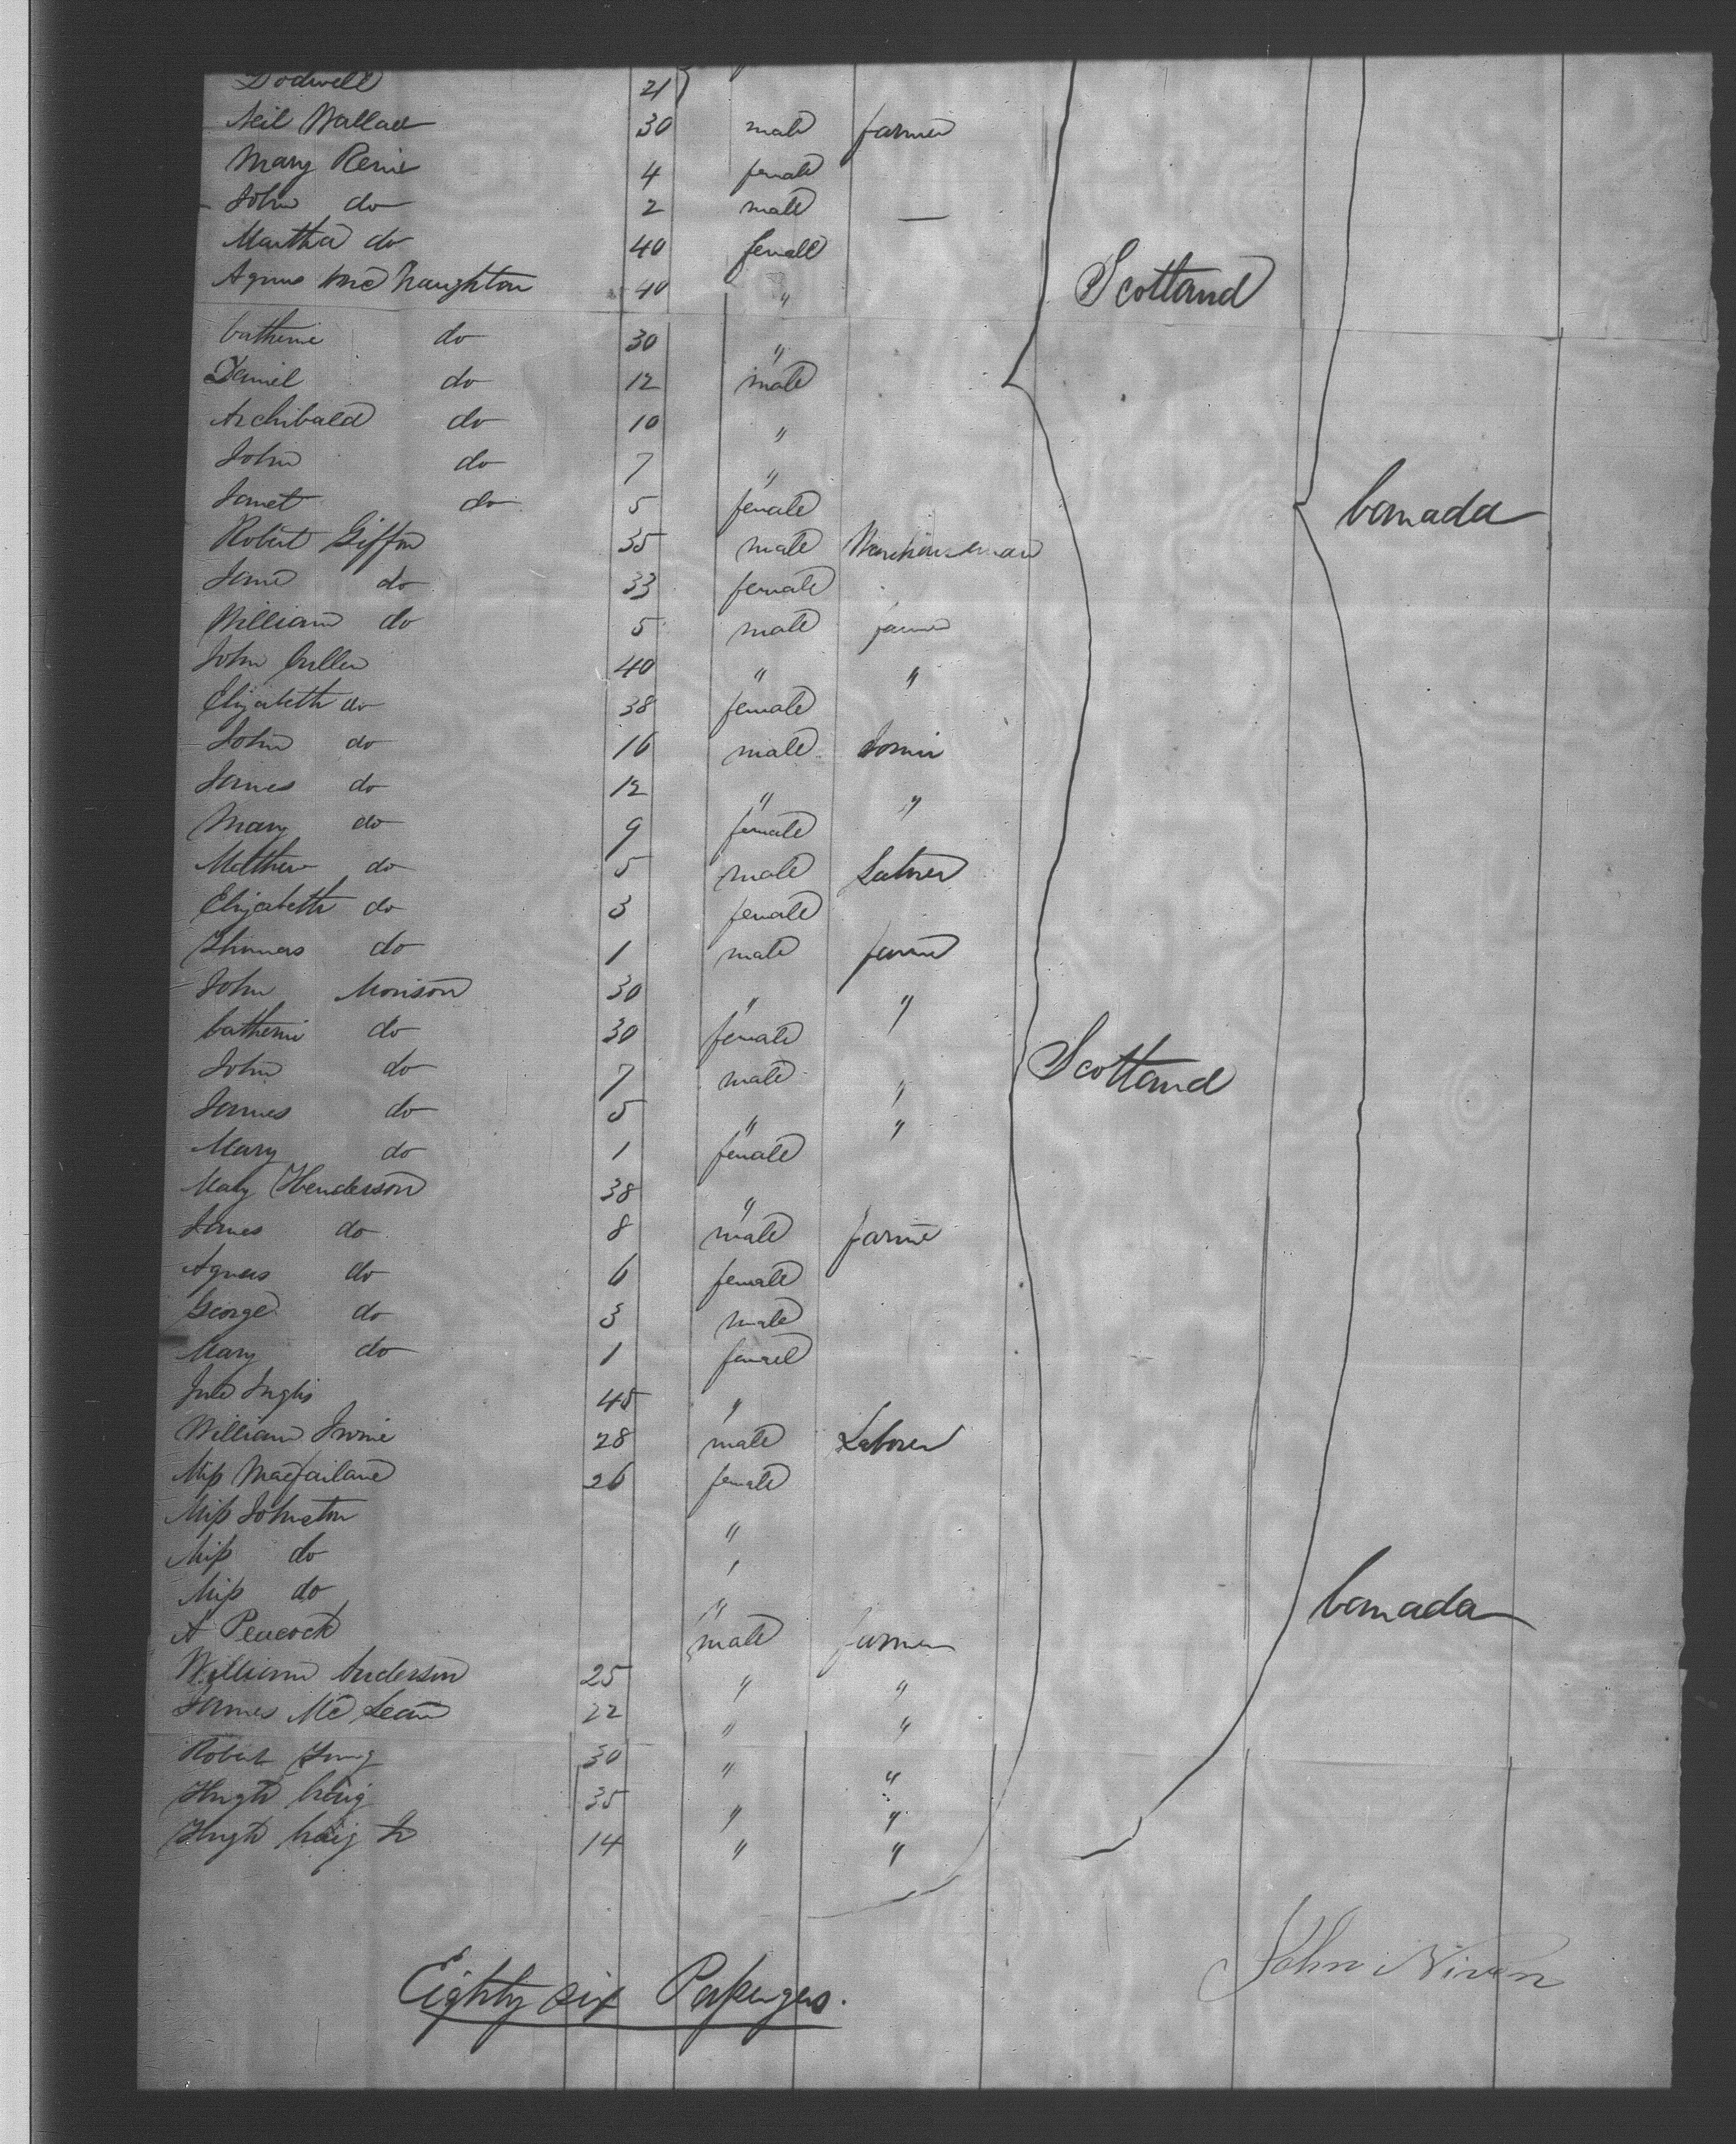 Dodwell 21
Neil Wallace 30 male farmer
Mary Renie 4 female
John do 2 male —
Martha do 40 female
Agnes McNaughton 40 "
Catherine do 30 "
Daniel do 12 male
Archibald do 10 "
John do 7 "
Janet do 5 female
Robert Giffin 35 male Warehouseman
Jane do 33 female
William do 5 male farmer
John Cullen 40 " "
Elizabeth do 38 female
John do 16 male
James do 12 " "
Mary do 9 female
Matthew do 5 male Laborer
Elizabeth do 3 female
Thomas do 1 male farmer
John Morison 30 " "
Catherine do 30 female
John do 7 male "
James do 5 " "
Mary do 1 female
Mary Henderson 38 "
James do 8 male farmer
Agnes do 6 female
George do 3 male
Mary do 1 female
Inglis 45 "
William Irvine 28 male Laborer
Miss Macfarlane 26 female
Miss Johnston "
Miss do "
Miss do "
A Peacock male farmer
William Anderson 25 " "
James McLean 22 " "
Robert 30 " "
Hugh Craig 35 " "
Hugh Craig Jr 14 " "
Scotland
Canada
Scotland
Canada
Eighty six Passengers.
John Niven